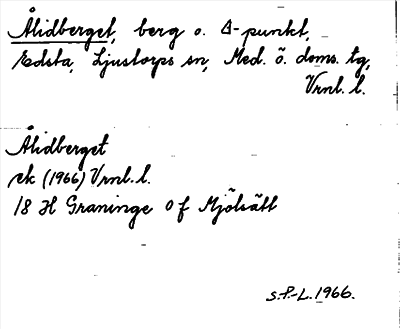 Ålidberget, berg o. ∆-punkt,
Edsta, Ljustorps sn, Med. ö. doms. tg,
Vrnl. l.
Ålidberget
ek (1966) Vrnl. l.
18 H Graninge 0 f Mjölsätt
S.P.-L. 1966.